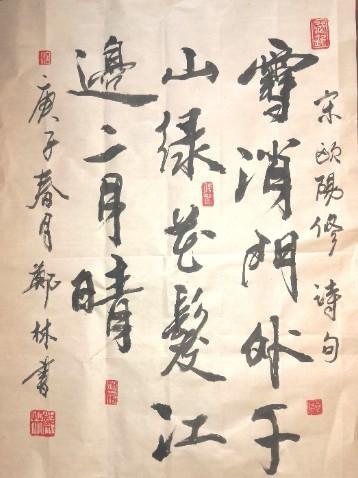 宋歐陽修詩句
雪消門外千
山緑花發江
邊二月晴
庚子春月鄭林書